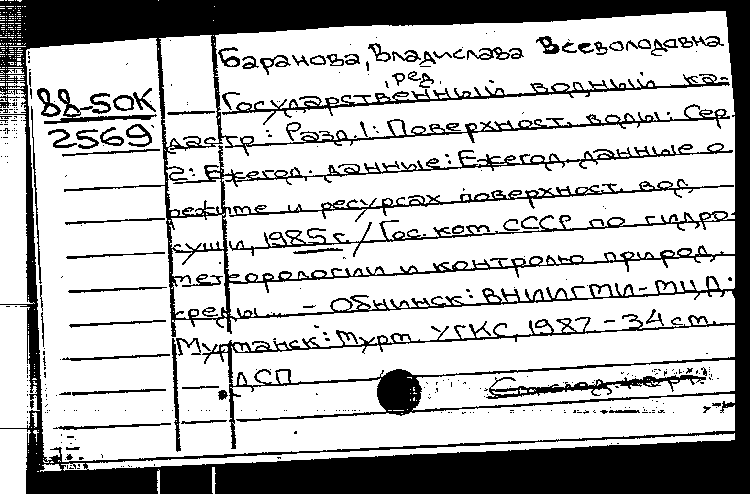 Баранова, Владислава Всеволодовна
ред.
88-50К
2569
Государственный водный ка-
дастр: Разд. 1: Поверхност. воды: Сер.
2: Ежегод. данные: Ежегод. данные о
режиме и ресурсах поверхност. вод
суши, 1985 г. / Гос. ком. СССР по гидро-
метеорологии и контролю природ.
среды... - Обнинск: ВНИИГМИ-МЦД;
Мурманск: Мурм. УГКС, 1987 - 34 см.
ДСП